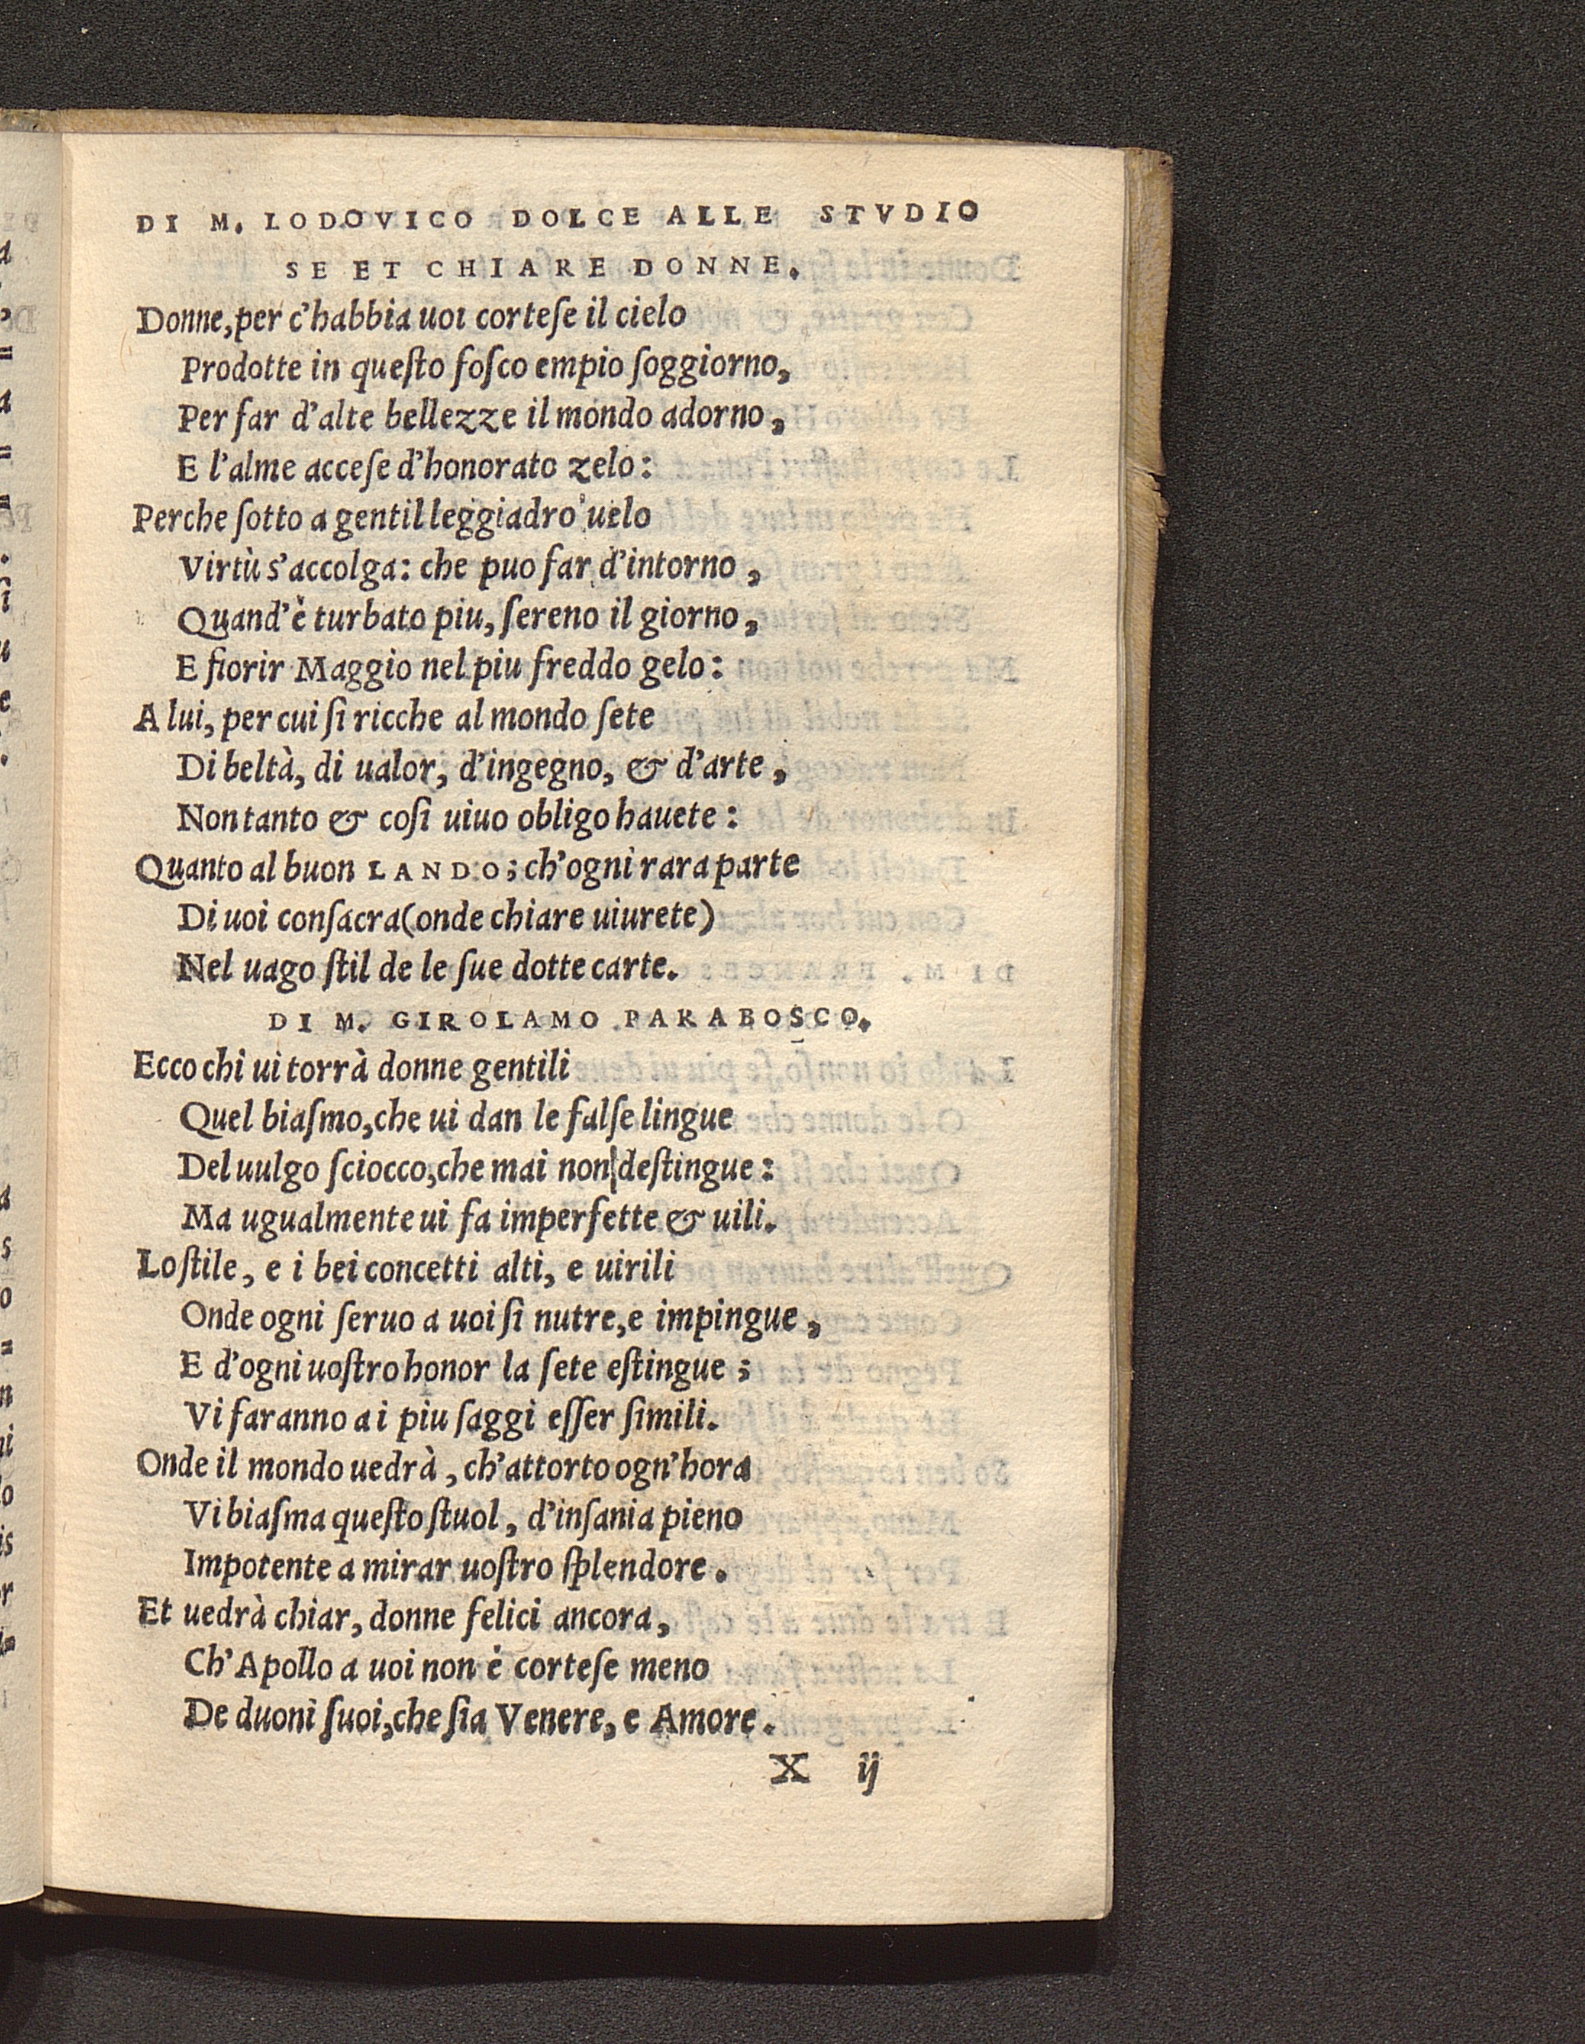 DI M. LODOVICO DOLCE ALLE STVDIO
SE ET CHIARE DONNE.
Donne, per c'habbia uoi cortese il cielo
Prodotte in questo fosco empio soggiorno,
Per far d'alte bellezze il mondo adorno,
E l'alme accese d'honorato zelo:
Perche sotto a gentil leggiadro uelo
Virtù s'accolga: che puo far d'intorno,
Quand'è turbato piu, sereno il giorno,
E fiorir Maggio nel piu freddo gelo:
A lui, per cui si ricche al mondo sete
Di beltà, di ualor, d'ingegno, & d'arte,
Non tanto & cosi uiuo obligo hauete:
Quanto al buon LANDO; ch'ogni rara parte
Di uoi consacra (onde chiare uiurete)
Nel uago stil de le sue dotte carte.
DI M. GIROLAMO PARABOSCO.
Ecco chi ui torrà donne gentili
Quel biasmo, che ui dan le false lingue
Del uulgo sciocco, che mai non destingue:
Ma ugualmente ui fa imperfette & uili.
Lo stile, e i bei concetti alti, e uirili
Onde ogni seruo a uoi si nutre, e impingue,
E d'ogni uostro honor la sete estingue;
Vi faranno a i piu saggi esser simili.
Onde il mondo uedrà, ch'attorto ogn'hora
Vi biasma questo stuol, d'insania pieno
Impotente a mirar uostro splendore.
Et uedrà chiar, donne felici ancora,
Ch'Apollo a uoi non è cortese meno
De duoni suoi, che sia Venere, e Amore.
X ij